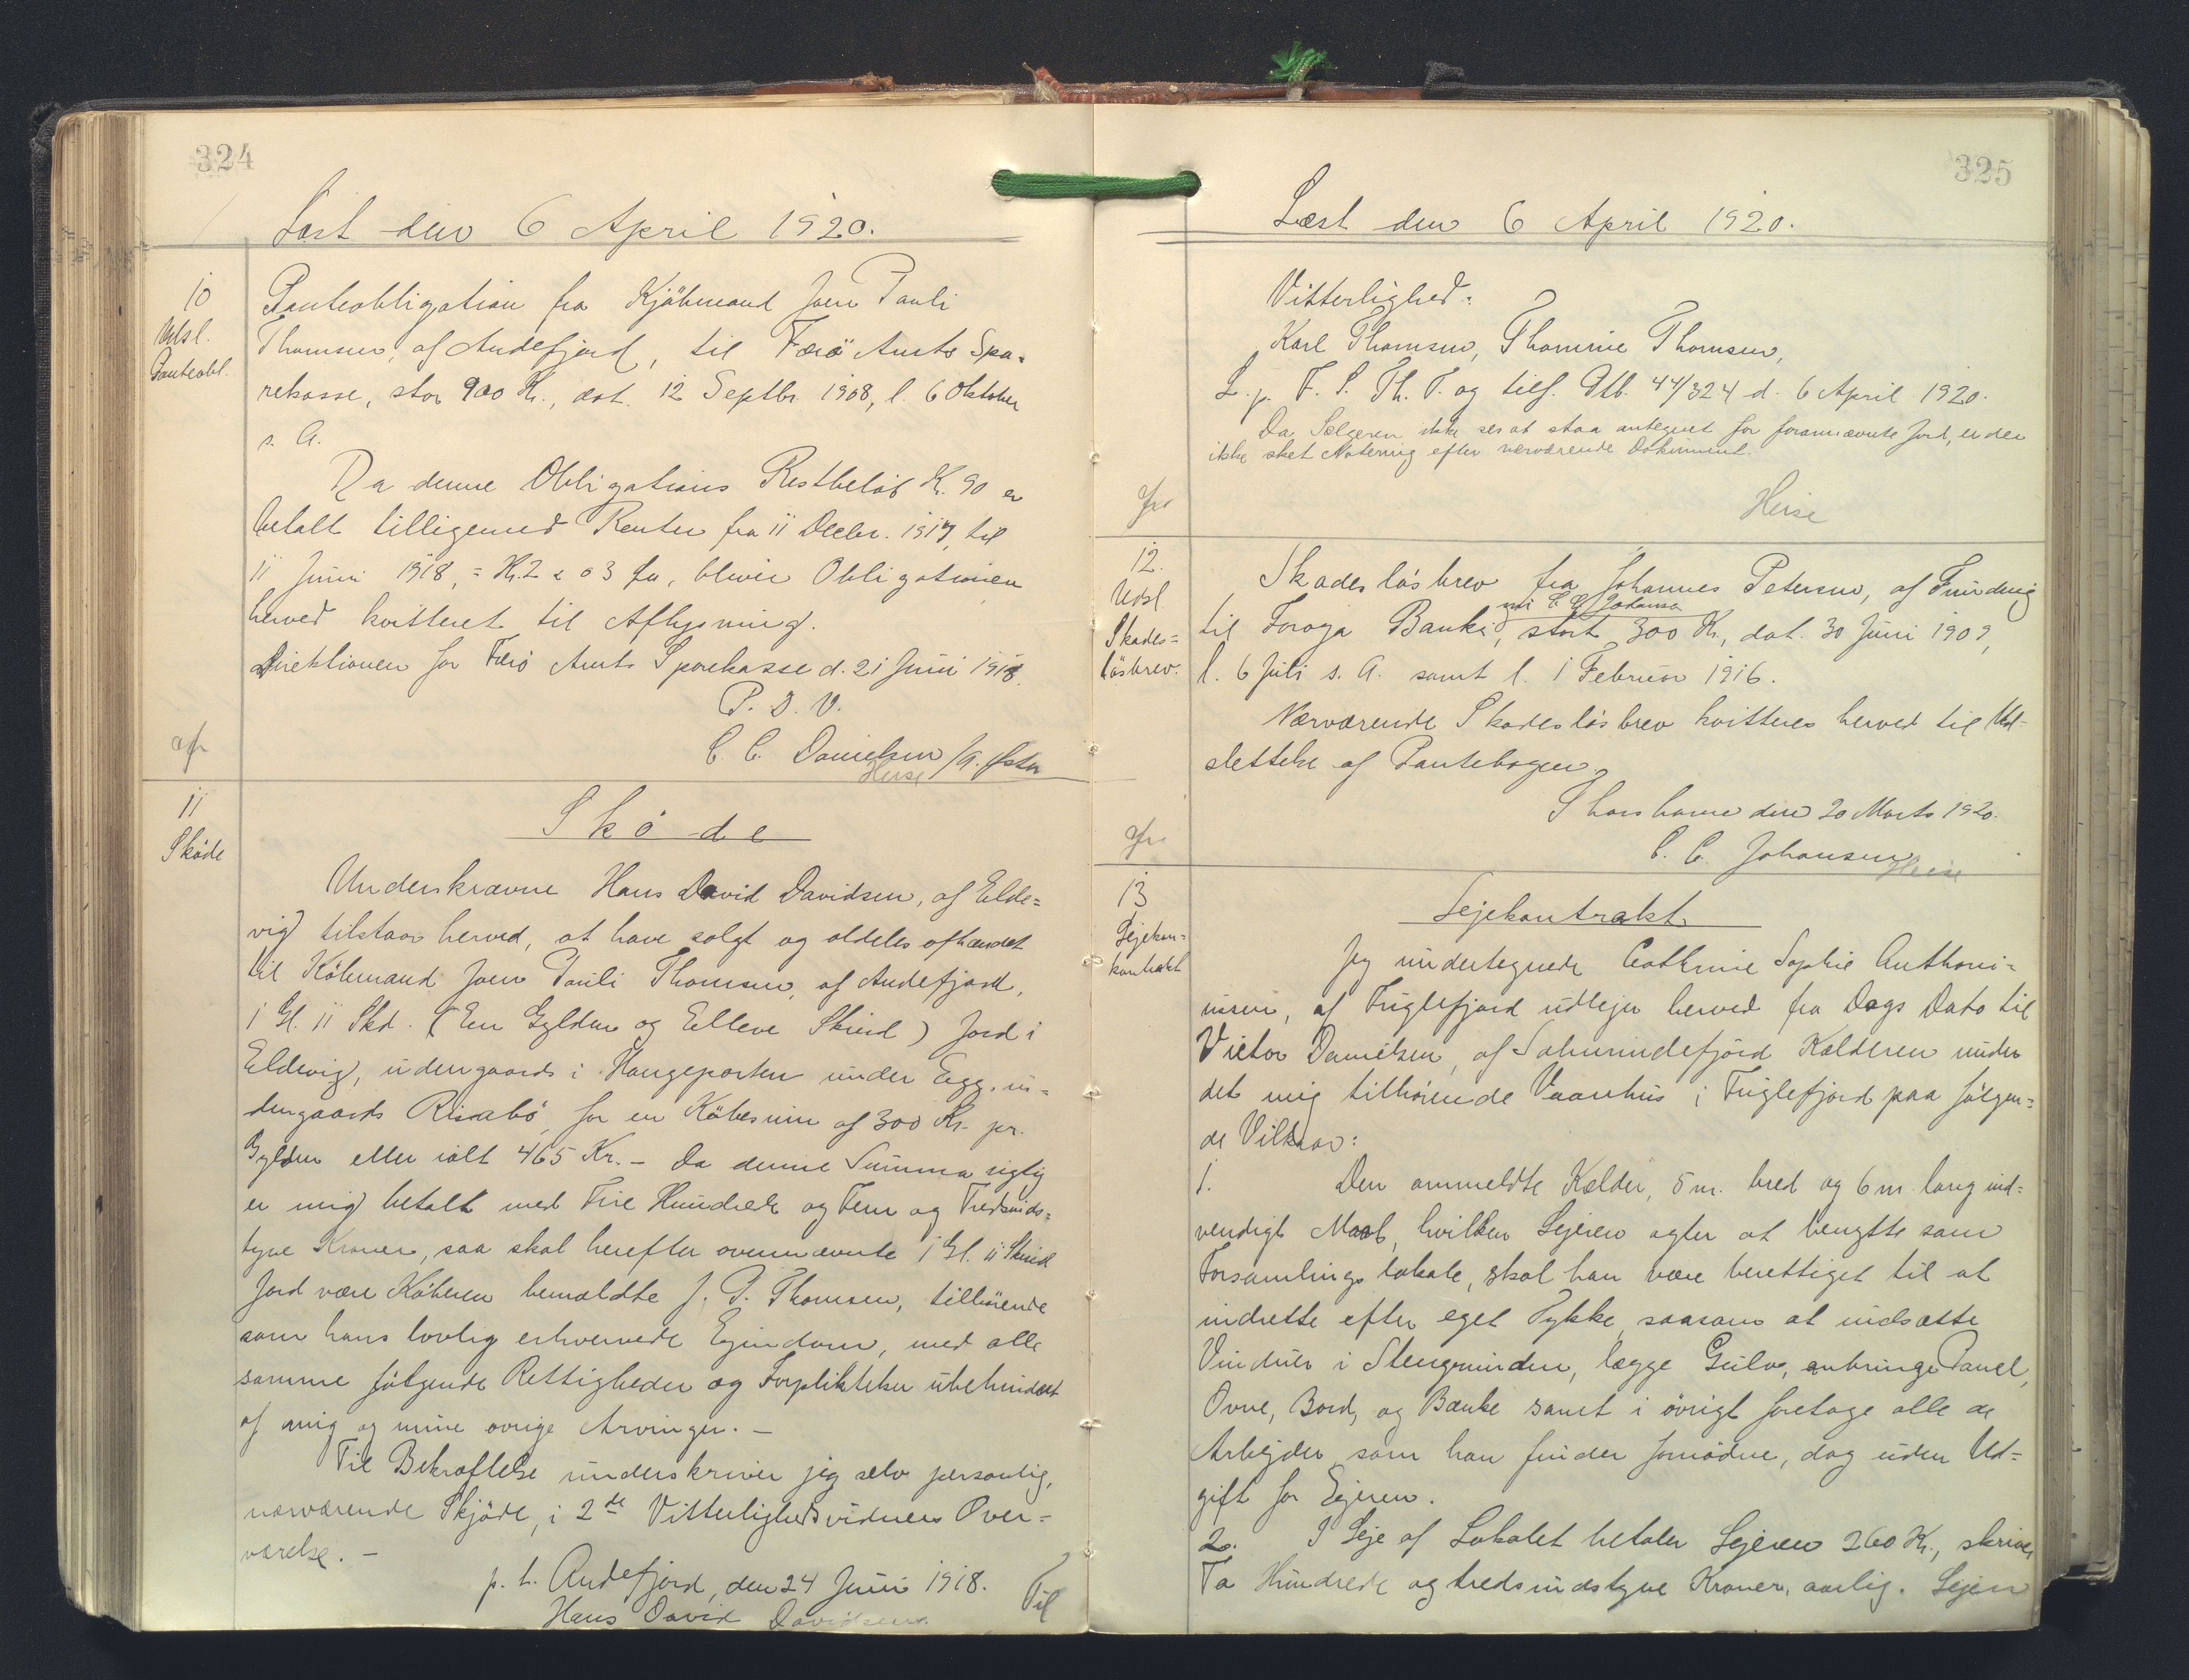 324
Læst den 6 April 1920.
10
Udsl.
Panteobl.
Panteobligation fra Kjöbmand Joen Pauli
Thomsen, af Andefjord, til Færö Amts Spa-
rekasse, stor 900 Kr., dat. 12 Septbr 1908, l. 6 Oktober
s. A.
Da denne Obligations Restbelöb Kr. 90 er
betalt tilligemed Renter fra 11 Decbr. 1917 til
11 Juni 1918, = Kr. 2 03 bliver Obligationen
herved kvitteret til Aflysning.
Direktionen for Færö Amts Sparekasse d. 21 Juni 1918.
P. D. V.
C. C. Danielsen /
Heise
11
Sköde
Sköde
Underskrevne Hans David Davidsen, af Elde=
vig tilstaar herved, at have solgt og aldeles afhændet
til Köbmand Joen Pauli Thomsen, af Andefjord,
1 Gl. 11 Skd. (Een Gylden og Elleve Skind) Jord i
Eldevig, udengaards i Haugeparten under Egg, in-
dengaards Risabö, for en Köbesum af 300 Kr. pr.
Gylden eller ialt 465 Kr. - Da denne Summa rigtig
er mig betalt med Fire Hundrede og Fem og Tredsinds=
tyve Kroner, saa skal herefter ovennævnte 1 Gl. 11 Skind
Jord være Köberen bemældte J. P. Thomsen, tilhörende
som hans lovlig erhvervede Ejendom, med alle
samme fölgende Rettigheder og Forpligtelser ubehindret
af mig og mine övrige Arvinger. -
Til Bekræftelse underskriver jeg selv personlig,
nærværende Skjöde, i 2de Vitterlighedsvidners Over-
værelse. -
p. t. Andefjord, den 24 Juni 1918.
Hans David Davidsen.
Til
325
Læst den 6 April 1920.
Vitterlighed:
Karl Thomsen, Thomine Thomsen,
L. p. F. S. Th. P. og tilf. Ptb. 44/324 d. 6 April 1920.
Da Sælgeren ikke ses at staa antegnet for forannævnte Jord, er der
ikke sket Notering efter nærværende Dokument.
Heise
12.
Udsl
Skades=
lösbrev.
Skadeslösbrev fra Johannes Petersen, af Funding
nu C. C. Johansen
til Foroya Banki, stort 300 Kr., dat. 30 Juni 1909,
l. 6 Juli s. A. samt l. 1 Februar 1916.
Nærværende Skadeslösbrev kvitteres herved til Ud-
slettelse af Pantebogen.
Thorshavn den 20 Marts 1920.
C. C. Johansen
Heise
13
Lejekon=
kontrakt
Lejekontrakt
Jeg undertegnede Cathrine Sophie Anthoni=
usen, af Fuglefjord udlejer herved fra Dags Dato til
Victor Danielsen, af Sølmundefjord Kælderen under
det mig tilhörende Vaanhus i Fuglefjord paa fölgen=
de Vilkaar:
1. Den ommeldte Kælder, 5 m. bred og 6 m lang ind=
vendigt Maal, hvilken Lejeren agter at benytte som
Forsamlingslokale, skal han være berettiget til at
indrette efter eget Tykke saasom at indsætte
Vinduer i Stengrunden, lægge Gulv, anbringe Panel,
Ovne, Bord, og Bænke samt i övrigt foretage alle de
Arbejder som han finder fornödne, dog uden Ud=
gift for Ejeren.
2. I Leje af Lokalet betaler Lejeren 260 Kr., skriver
To Hundrede og tredsindstyve Kroner, aarlig. Lejen